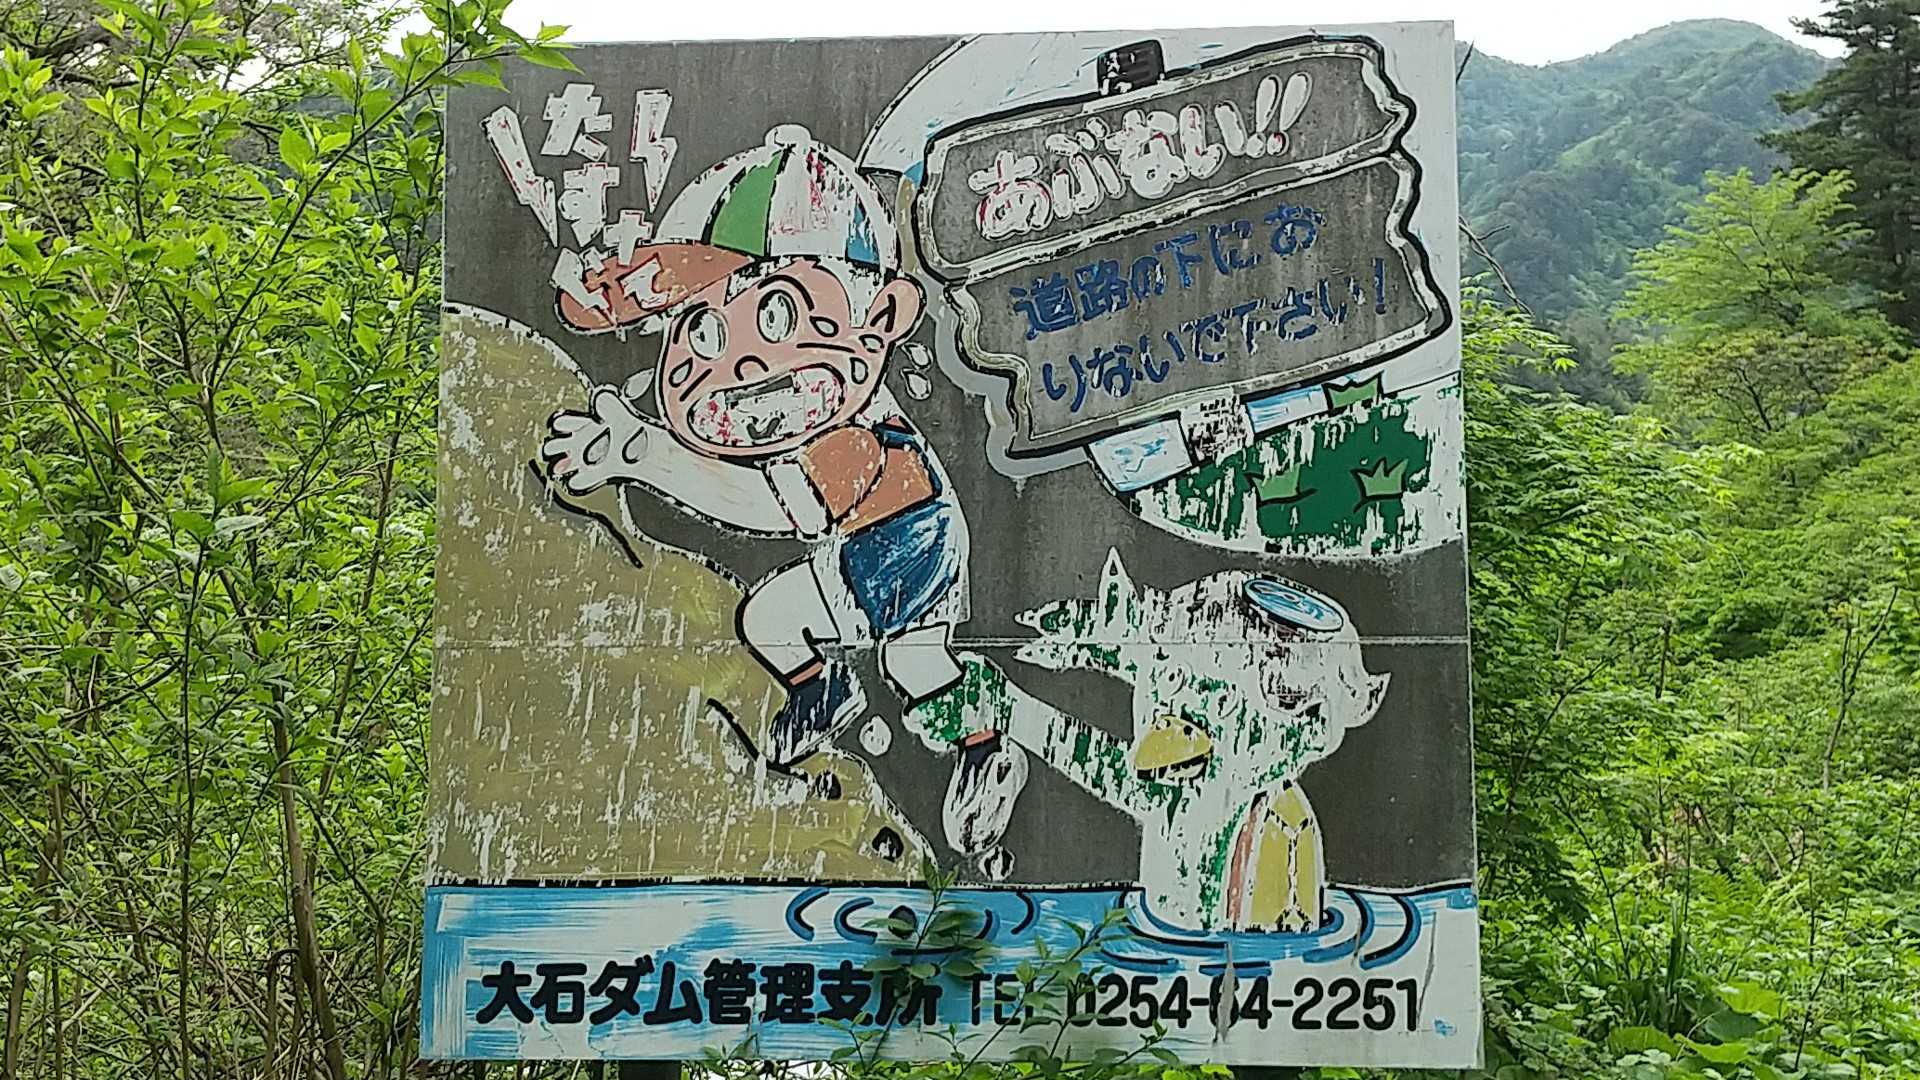 たすけて
あぶない!!
道路の下にお
りないで下さい!
大石ダム管理支所 TEL 0254-64-2251